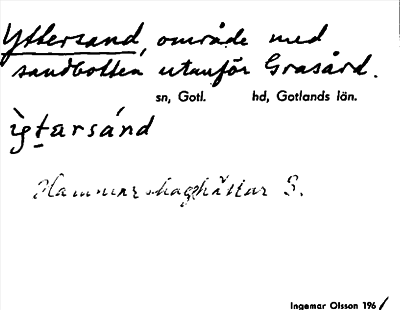 Yttersand, område med
sandbotten utanför Grasård.
sn, Gotl. hd, Gotlands län.
ìg̱tarsánd
Hammarshaghällar S.
Ingemar Olsson 1961